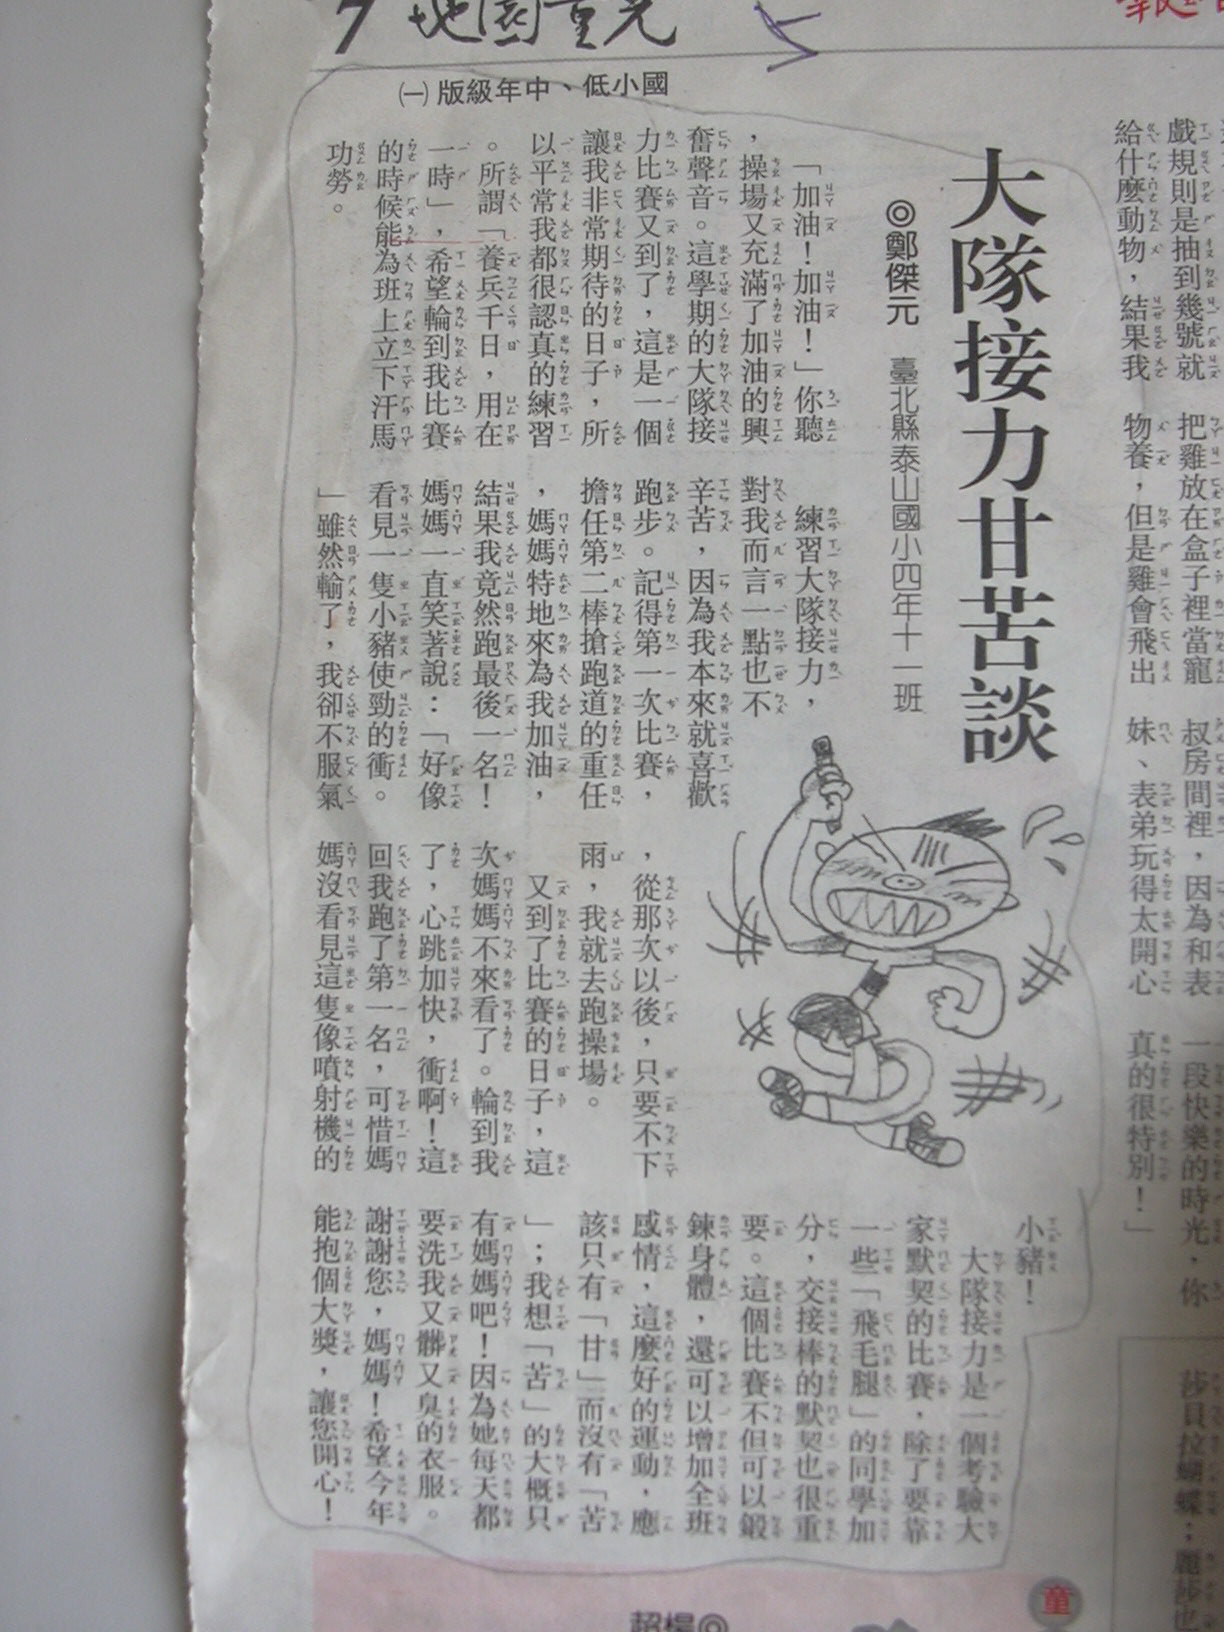 兒童園地
國小低、中年級版㈠
大隊接力甘苦談
◎鄭傑元 臺北縣泰山國小四年十一班
「加油!加油!」你聽
,操場又充滿了加油的興
奮聲音。這學期的大隊接
力比賽又到了,這是一個
讓我非常期待的日子,所
以平常我都很認真的練習
。所謂「養兵千日,用在
一時」,希望輪到我比賽
的時候能為班上立下汗馬
功勞。
練習大隊接力,
對我而言一點也不
辛苦,因為我本來就喜歡
跑步。記得第一次比賽,
擔任第二棒搶跑道的重任
,媽媽特地來為我加油,
結果我竟然跑最後一名!
媽媽一直笑著說:「好像
看見一隻小豬使勁的衝。
」雖然輸了,我卻不服氣
,從那次以後,只要不下
雨,我就去跑操場。
又到了比賽的日子,這
次媽媽不來看了。輪到我
了,心跳加快,衝啊!這
回我跑了第一名,可惜媽
媽沒看見這隻像噴射機的
小豬!
大隊接力是一個考驗大
家默契的比賽,除了要靠
一些「飛毛腿」的同學加
分,交接棒的默契也很重
要。這個比賽不但可以鍛
鍊身體,還可以增加全班
感情,這麼好的運動,應
該只有「甘」而沒有「苦
」;我想「苦」的大概只
有媽媽吧!因為她每天都
要洗我又髒又臭的衣服。
謝謝您,媽媽!希望今年
能抱個大獎,讓您開心!
戲規則是抽到幾號就
給什麼動物,結果我
把雞放在盒子裡當寵
物養,但是雞會飛出
叔房間裡,因為和表
妹、表弟玩得太開心
一段快樂的時光,你
真的很特別!」
莎貝拉蝴蝶;麗莎也
童
◎楊超